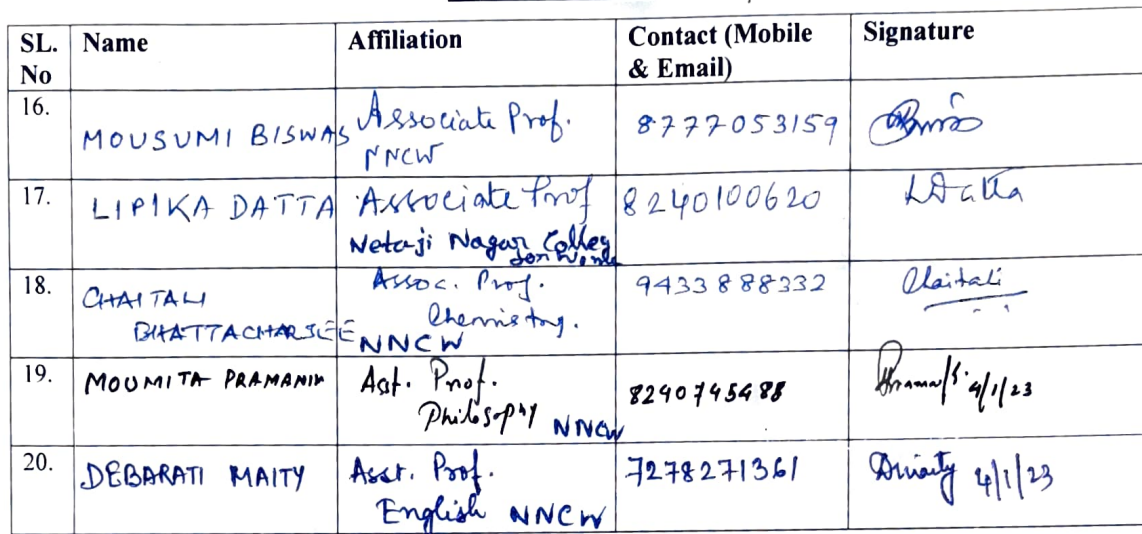 SL. No | Name | Affiliation | Contact (Mobile & Email) | Signature
16. | MOUSUMI BISWAS | Associate Prof. NNCW | 8777053159 |
17. | LIPIKA DATTA | Associate Prof Netaji Nagar Colleg for Women | 8240100620 | LDatta
18. | CHAITALI BHATTACHARJEE | Assoc. Prof. Chemistry. NNCW | 9433888332 | Chaitali
19. | MOUMITA PRAMANIK | Ast. Prof. Philosophy NNCW | 8240745488 | 4/1/23
20. | DEBARATI MAITY | Asst. Prof. English NNCW | 7278271361 | Dmaity 4/1/23